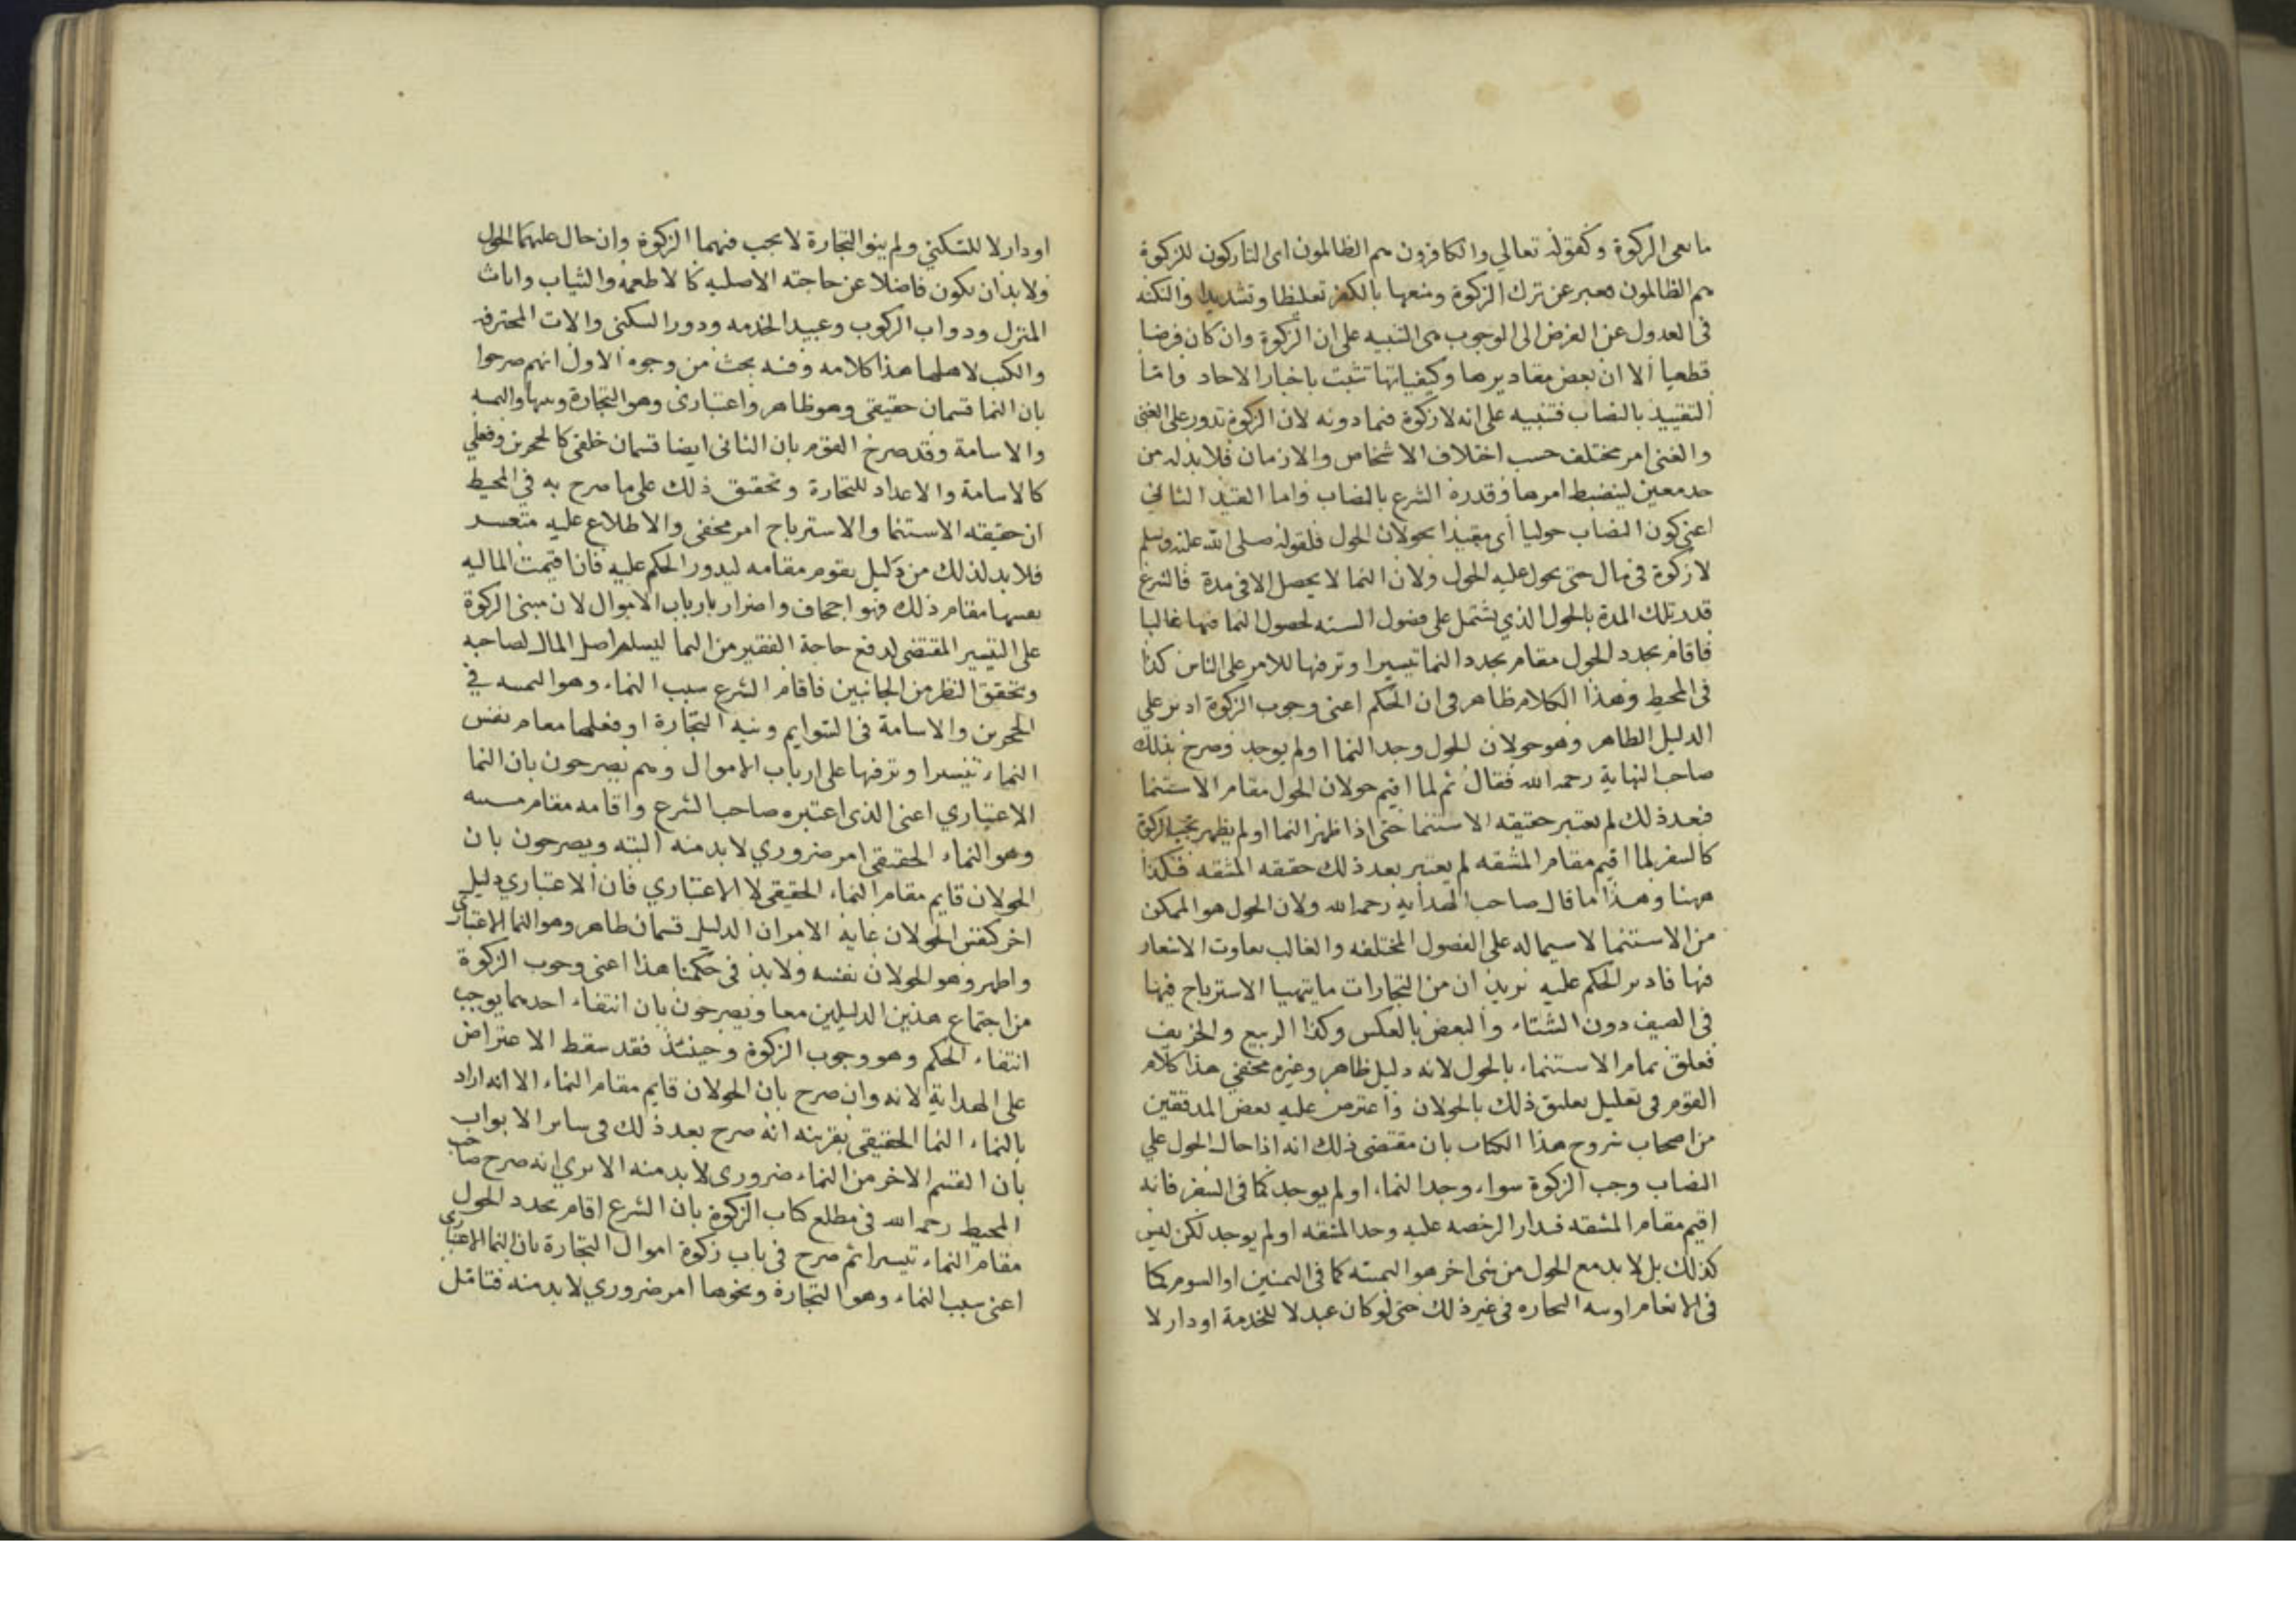 ما نعى الزكوة وكقوله تعالي والكافرون هم الظالمون اى التاركون للزكوة
هم الظالمون فعبر عن ترك الزكوة ومنعها بالكفر تغليظا وتشديدا والنكته
فى العدول عن الفرض الى الوجوب هى التنبيه على ان الزكوة وان كان فرضا
قطعيا الا ان بعض مقاديرها وكيفياتها تثبت باخبار الاحاد واما
التقييد بالنصاب فتنبيه على انه لا زكوة فيما دونه لان الزكوة تدور على الغنى
والغنى امر مختلف حسب اختلاف الاشخاص والازمان فلابد له من
حد معين لينضبط امرها وقدره الشرع بالنصاب واما القيد الثاني
اعنى كون النصاب حوليا أى مقيدا بحولان الحول فلقوله صلى الله عليه وسلم
لا زكوة فى مال حتى يحول عليه الحول ولان النما لا يحصل الا فى مدة فالشرع
قدر تلك المدة بالحول الذي يشتمل على فصول السنه لحصول النما فيها غالبا
فاقام تجدد الحول مقام تجدد النما تيسيرا وترفيها للامر على الناس كذا
فى المحيط وهذا الكلام ظاهر فى ان الحكم اعنى وجوب الزكوة ادير على
الدليل الظاهر وهو حولان الحول وجد النما او لم يوجد وصرح بذلك
صاحب النهاية رحمه الله فقال ثم لما اقيم حولان الحول مقام الاستنما
فبعد ذلك لم يعتبر حقيقه الاستنما حتى اذا ظهر النما او لم يظهر تجب الزكوة
كالسفر لما اقيم مقام المشقه لم يعتبر بعد ذلك حقيقه المشقه فكذا
ههنا وهذا ما قال صاحب الهدايه رحمه الله ولان الحول هو الممكن
من الاستنما لاسيما له على الفصول المختلفه والغالب تفاوت الاسعار
فيها فادير الحكم عليه نريد ان من التجارات ما يتهيا الاسترباح فيها
فى الصيف دون الشتاء والبعض بالعكس وكذا الربيع والخريف
فعلق تمام الاستنماء بالحول لانه دليل ظاهر وغيره مخفي هذا كلام
القوم فى تعليل تعليق ذلك بالحولان واعترض عليه بعض المدققين
من اصحاب شروح هذا الكتاب بان مقتضى ذلك انه اذا حال الحول علي
النصاب وجب الزكوة سواء وجد النماء او لم يوجد كما فى السفر فانه
اقيم مقام المشقه فدار الرخصه عليه وجد المشقه او لم يوجد لكن ليس
كذلك بل لا بد مع الحول من شى اخر هو الثمنيه كما فى الثمنين او السوم كما
فى الانعام او نيه التجاره فى غير ذلك حتى لو كان عبد لا للخدمة او دار لا
او دار لا للسكني ولم ينو التجارة لا يجب فيهما الزكوة وان حال عليهما الحول
ولابد ان يكون فاضلا عن حاجته الاصليه كالاطعمه والثياب واثاث
المنزل ودواب الركوب وعبيد الخدمه ودور السكنى والات المحترفه
والكتب لاهلها هذا كلامه وفيه بحث من وجوه الاول انهم صرحوا
بان النما قسمان حقيقى وهو ظاهر واعتبارى وهو التجارة ونيتها والثمنيه
والاسامة وقد صرح القوم بان الثانى ايضا قسمان خلقى كالحجرين وفعلي
كالاسامة والاعداد للتجارة وتحقيق ذلك على ما صرح به في المحيط
ان حقيقه الاستنما والاسترباح امر مخفى والاطلاع عليه متعسر
فلابد لذلك من دليل يقوم مقامه ليدور الحكم عليه فان اقيمت الماليه
بعينها مقام ذلك فهو اجحاف واضرار بارباب الاموال لان مبنى الزكوة
على التيسير المقتضى لدفع حاجة الفقير من النما ليسلم اصل المال لصاحبه
وتحقق النظر من الجانبين فاقام الشرع سبب النماء وهو الثمنيه في
الحجرين والاسامة فى السوايم ونيه التجارة او فعلها مقام نفس
النماء تيسيرا وترفيها على ارباب الاموال وهم يصرحون بان النما
الاعتباري اعنى الذى اعتبره صاحب الشرع واقامه مقام مسببه
وهو النماء الحقيقى امر ضروري لابد منه البته ويصرحون بان
الحولان قايم مقام النماء الحقيقى لا الاعتباري فان الاعتباري دليل
اخر كنفس الحولان غايه الامر ان الدليل قسمان ظاهر وهو النما الاعتبارى
واظهر وهو الحولان نفسه ولابد فى حكمنا هذا اعنى وجوب الزكوة
من اجتماع هذين الدليلين معا ويصرحون بان انتفاء احدهما يوجب
انتفاء الحكم وهو وجوب الزكوة وحينئذ فقد سقط الاعتراض
على الهداية لانه وان صرح بان الحولان قايم مقام النماء الا انه اراد
بالنماء النما الحقيقى بقرينه انه صرح بعد ذلك فى ساير الابواب
بان القسم الاخر من النماء ضرورى لابد منه الا يرى انه صرح صاحب
المحيط رحمه الله فى مطلع كتاب الزكوة بان الشرع اقام تجدد الحول
مقام النماء تيسيرا ثم صرح فى باب زكوة اموال التجارة بان النما الاعتبارى
اعنى سبب النماء وهو التجارة ونحوها امر ضروري لابد منه فتامل